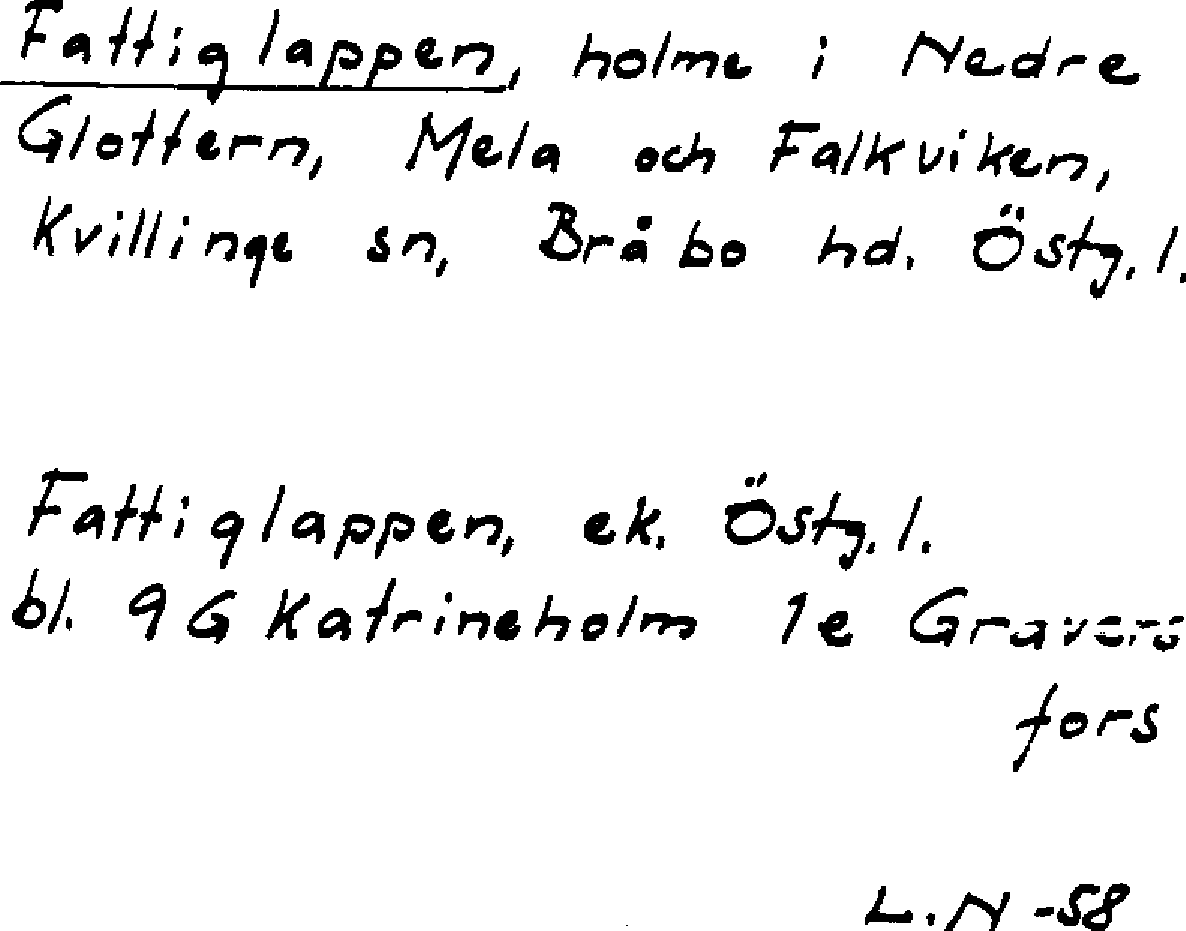 Fattiglappen, holme i Nedre
Glottern, Mela och Falkviken,
Kvillinge sn, Bråbo hd. Östg.l.
Fattiglappen, ek. Östg.l.
bl. 9G Katrineholm 1e Gravers
fors
L.N -58